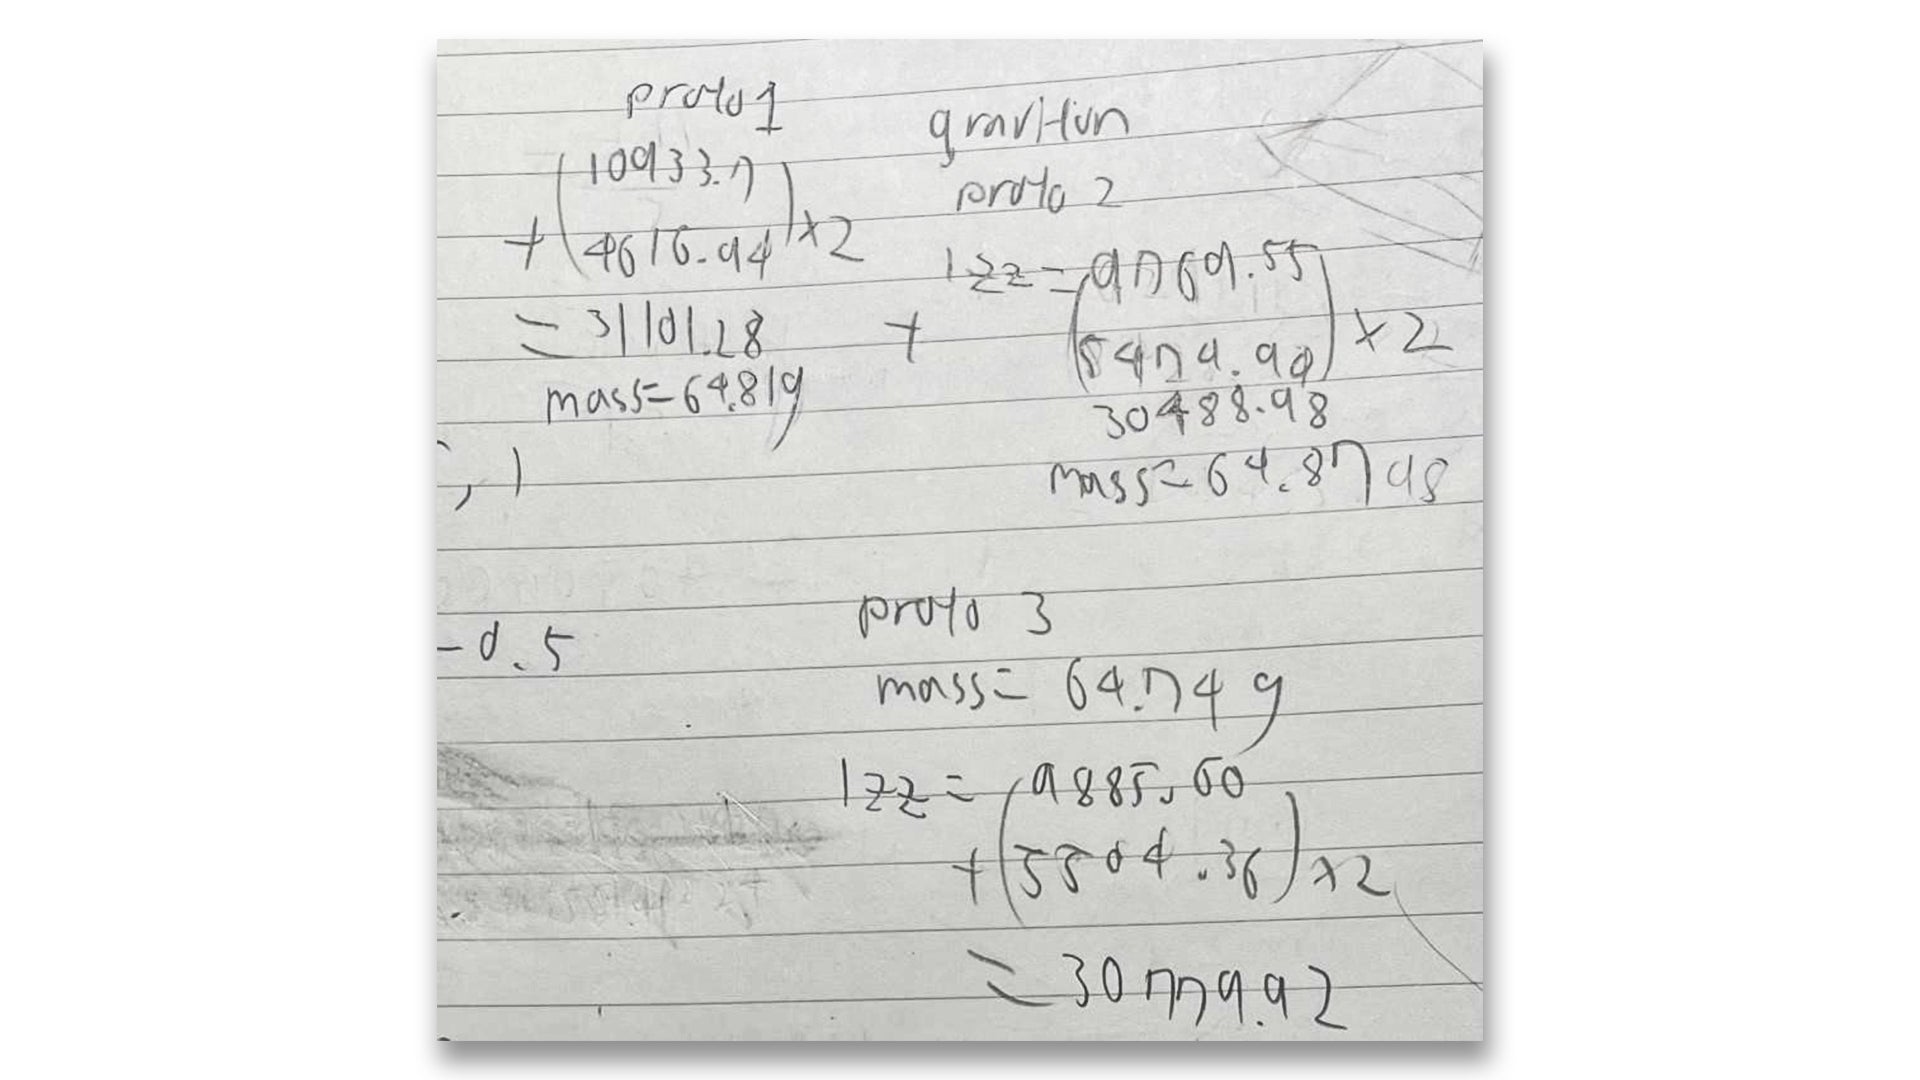 proto 1
10933.7
+ 4616.94 ) x2
= 31101.28
mass = 64.81g
, 1
graviton
proto 2
Izz = (9769.55
+ 5474.94) x2
30488.98
mass = 64.8798
-0.5
proto 3
mass = 64.74 g
Izz = (9885.60
+ (5504.36) x2
= 30779.92